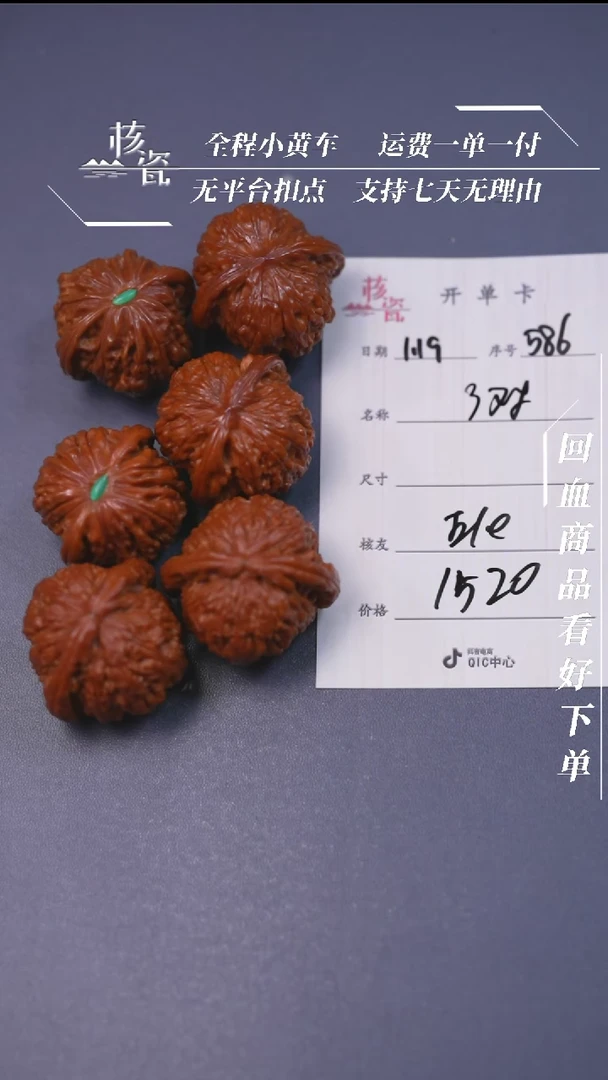 核瓷
全程小黄车 运费一单一付
无平台扣点 支持七天无理由
核瓷
开单卡
日期 1.19 序号 586
名称 3对
尺寸
核友
价格 1520
抖音电商
QIC中心
回血商品看好下单